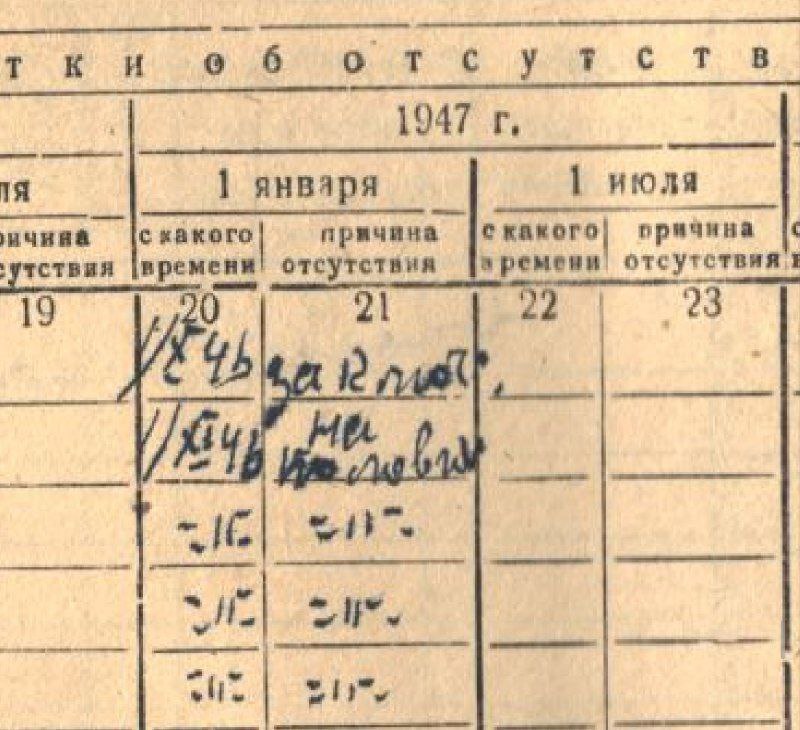 тки об отсутств
1947 г.
ля 1 января 1 июля
ричина с какого причина с какого причина с
сутствия времени отсутствия времени отсутствия в
19 20 21 22 23
1/X 46
1/XI 46 на
-"- -"-
-"- -"-
-"- -"-